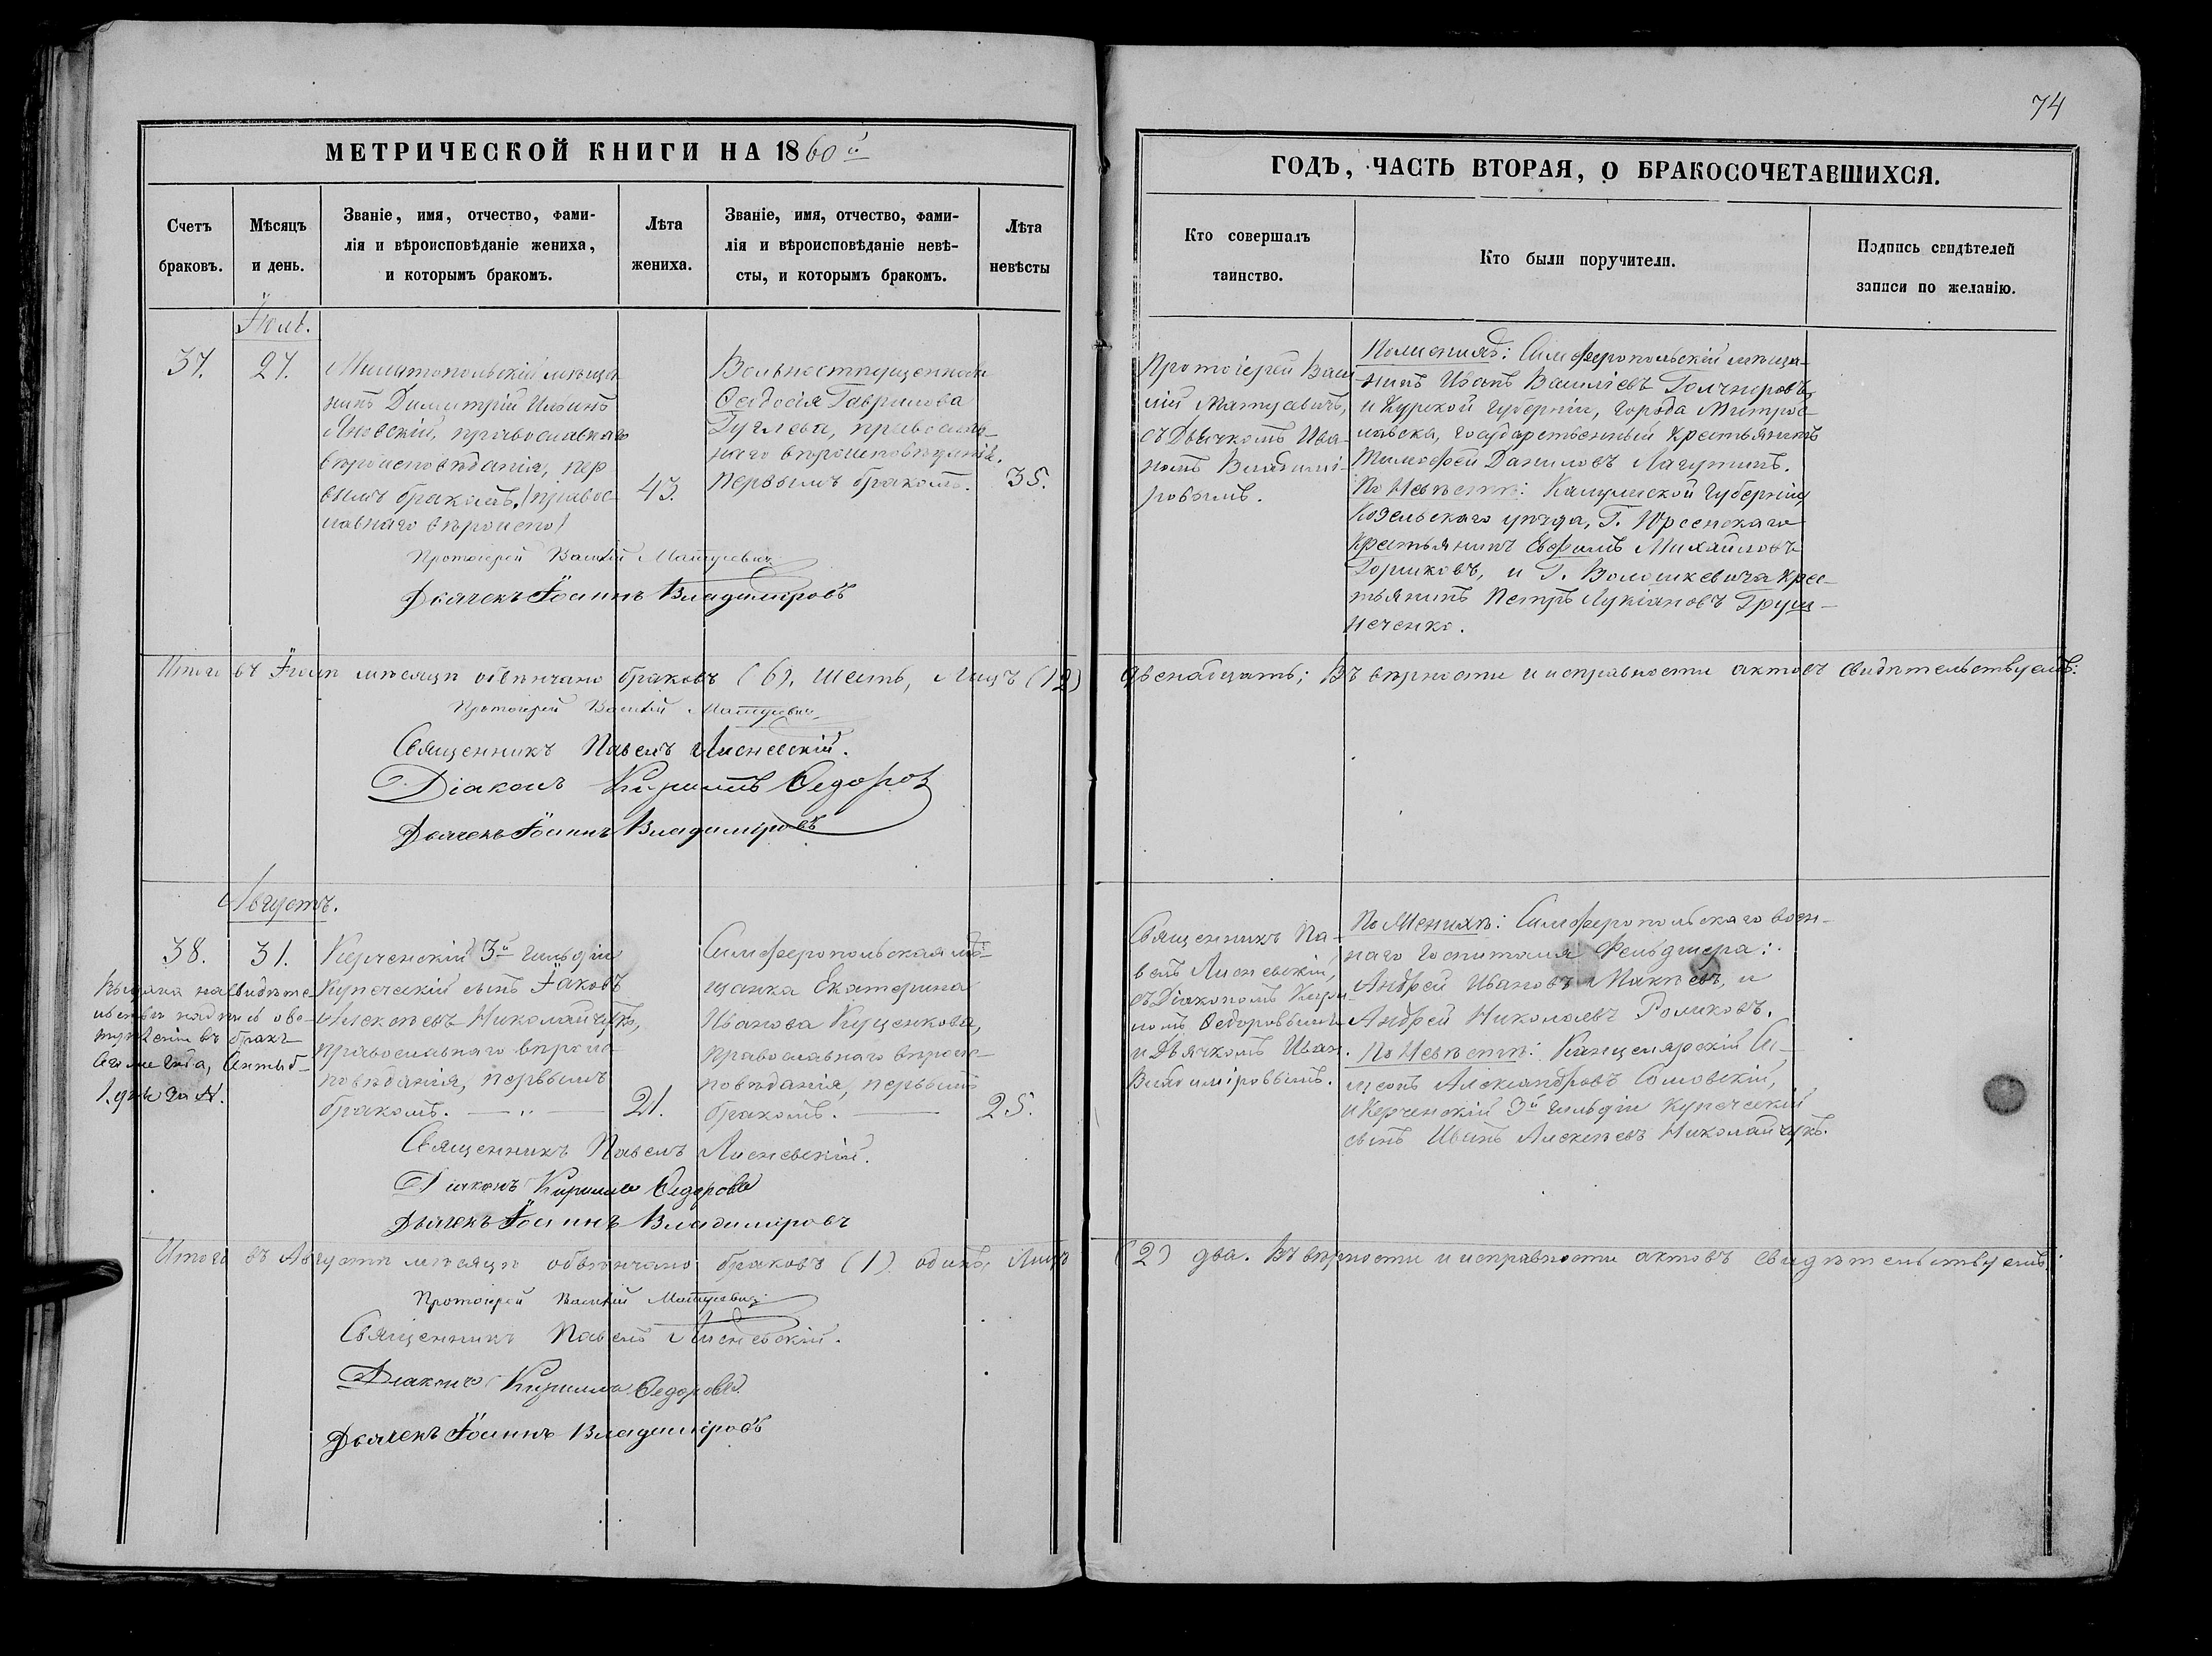 74
МЕТРИЧЕСКОЙ КНИГИ НА 1860й
ГОДЪ, ЧАСТЬ ВТОРАЯ, О БРАКОСОЧЕТАВШИХСЯ.
Счетъ
браковъ.
Мѣсяцъ
и день.
Званіе, имя, отчество, фами-
лія и вѣроисповѣданіе жениха,
и которымъ бракомъ.
Лѣта
жениха.
Званіе, имя, отчество, фами-
лія и вѣроисповѣданіе невѣ-
сты, и которымъ бракомъ.
Лѣта
невѣсты
Кто совершалъ
таинство.
Кто были поручители.
Подпись свидѣтелей
записи по желанію.
Іюль.
37.
27.
Мелитопольскій мѣща-
нинъ Димитрій Ильинъ
Яновскій, православнаго
вѣроисповѣданія, пер
вымъ бракомъ. (правос-
лавнаго вѣроиспо)
43.
Вольноотпущенная
Ѳедосія Гаврилова
православ-
наго вѣроисповѣданія.
Первымъ бракомъ.
35.
Протоіерей Васи
лій Матусевичъ,
съ Дьячкомъ Ива-
номъ Владимі-
ровымъ.
По женихѣ: Симферопольскій мѣща-
нинъ Иванъ Василіевъ
и Курской Губерніи, города Митрос-
лавска, государственный крестьянинъ
Тимофей Даниловъ Лагутинъ.
По Невѣстѣ: Калужской Губерніи,
Козельскаго уѣзда, Г.
Крестьянинъ Евфимъ Михайловъ
Горшковъ, и Г. Волошкевича крес-
тьянинъ Петръ Лукіановъ Груш-
неченко.
Протоіерей Василій Матусевичъ
Дьячекъ Іоаннъ Владиміровъ
Итого въ Іюлѣ мѣсяцѣ обвѣнчано браковъ (6). шесть, Лицъ (12)
двенадцать; Въ вѣрности и исправности актовъ свидѣтельствуемъ:
Протоіерей Василій Матусевичъ
Священникъ Павелъ Лисневскій.
Діаконъ Кириллъ Ѳедоров
Дьячекъ Іоаннъ Владиміровъ
Августъ.
38.
31.
Выдана на свидѣте-
льства надпись о вс-
тупленіи въ бракъ
Сего же года, Сентяб-
1 дня за №.
Керченскій 3й гильдіи
Купеческій сынъ Іаковъ
Алексѣевъ Николайчукъ,
православнаго вѣроис-
повѣданія, первымъ
бракомъ. — „ —
21.
Симферопольская мѣ-
щанка Екатерина
Иванова Куценкова,
православнаго вѣроис-
повѣданія, первымъ
бракомъ. —
25.
Священникъ Па-
велъ Лисневскій,
съ Діакономъ Кири-
ломъ Ѳедоровымъ
и Дьячкомъ Иван.
Владиміровымъ.
По Женихѣ: Симферопольскаго воен-
наго Госпиталя Фельдшера:
Андрей Ивановъ Макѣевъ, и
Андрей Николаевъ Роликовъ.
По Невѣстѣ: Канцелярскій Си-
меонъ Александровъ Сомовскій,
и Керченскій 3й гильдіи купеческій
сынъ Иванъ Алексѣевъ Николайчукъ.
Священникъ Павелъ Лисневскій.
Діаконъ Кириллъ Ѳедоровъ
Дьячекъ Іоаннъ Владиміровъ
Итого въ Августѣ мѣсяцѣ обвѣнчано браковъ (1). одинъ, Лицъ
(2) два. Въ вѣрности и исправности актовъ свидѣтельствуемъ.
Протоіерей Василій Матусевичъ
Священникъ Павелъ Лисневскій.
Діаконъ Кириллъ Ѳедоровъ
Дьячекъ Іоаннъ Владиміровъ